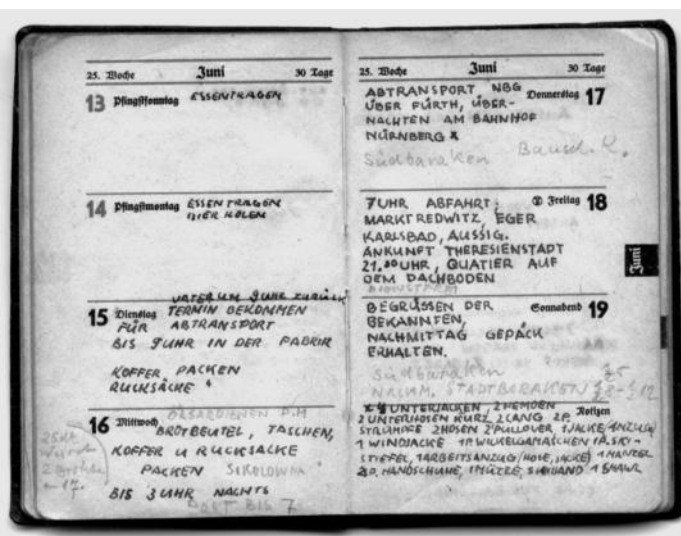 25. Woche Juni 30 Tage
13 Pfingstsonntag ESSENTRAGEN
14 Pfingstmontag ESSENTRAGEN
BIER HOLEN
VATER UM 9UHR ZURÜCK
15 Dienstag TERMIN BEKOMMEN
FÜR ABTRANSPORT
BIS 9UHR IN DER FABRIK
KOFFER PACKEN
RUCKSÄCKE
16 Mittwoch ÖLSARDIENEN
BROTBEUTEL, TASCHEN,
KOFFER U RUCKSÄCKE
PACKEN
BIS 3UHR NACHTS
BIS 7
25. Woche Juni 30 Tage
ABTRANSPORT NBG Donnerstag 17
ÜBER FÜRTH, ÜBER-
NACHTEN AM BAHNHOF
NÜRNBERG x
Südbaraken
7UHR ABFAHRT: Freitag 18
MARKTREDWITZ, EGER
KARLSBAD, AUSSIG.
ANKUNFT THERESIENSTADT
21.30UHR, QUATIER AUF
DEM DACHBODEN
Juni
BEGRÜSSEN DER Sonnabend 19
BEKANNTEN,
NACHMITTAG GEPÄCK
ERHALTEN.
Südbaraken
NACHM. STADTBARAKEN
UNTERJACKEN, 2HEMDEN Notizen
2UNTERHOSEN KURZ 2LANG 2P.
STRÜMPFE 2HOSEN 2PULLOVER 1JACKE/ANZUG/
1 WINDJACKE 1P.WICKELGAMASCHEN 1P.SKI-
STIEFEL, 1ARBEITSANZUG/HOSE, JACKE/ 1MANTEL
2P. HANDSCHUHE, 1MÜTZE, 1SHAWL